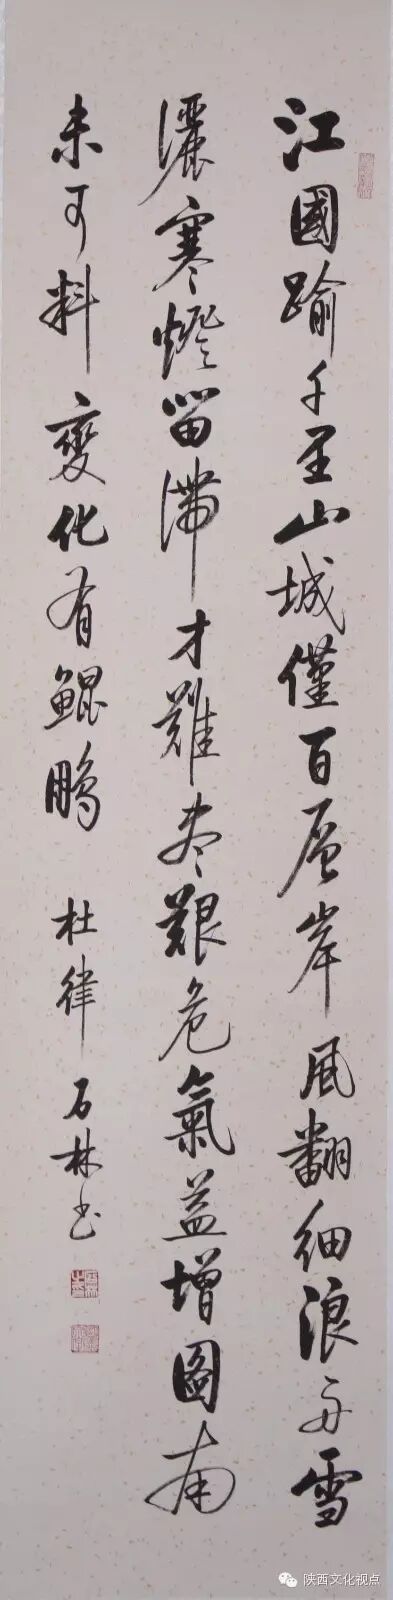 江國踰千里山城僅百層岸風翻細浪舟雪
灑寒燈留滯才難盡艱危氣益增圖南
未可料變化有鯤鵬
杜律 石林书
陕西文化视点